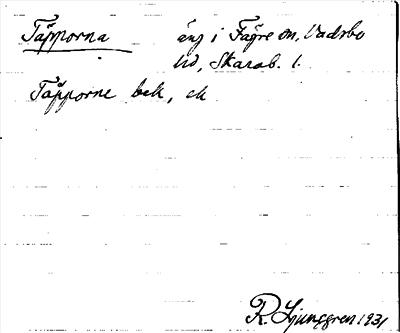 Täpporna äng i Fägre sn, Vadsbo
hd, Skarab. l.
Täpporne bek, ck
R. Ljunggren 1931